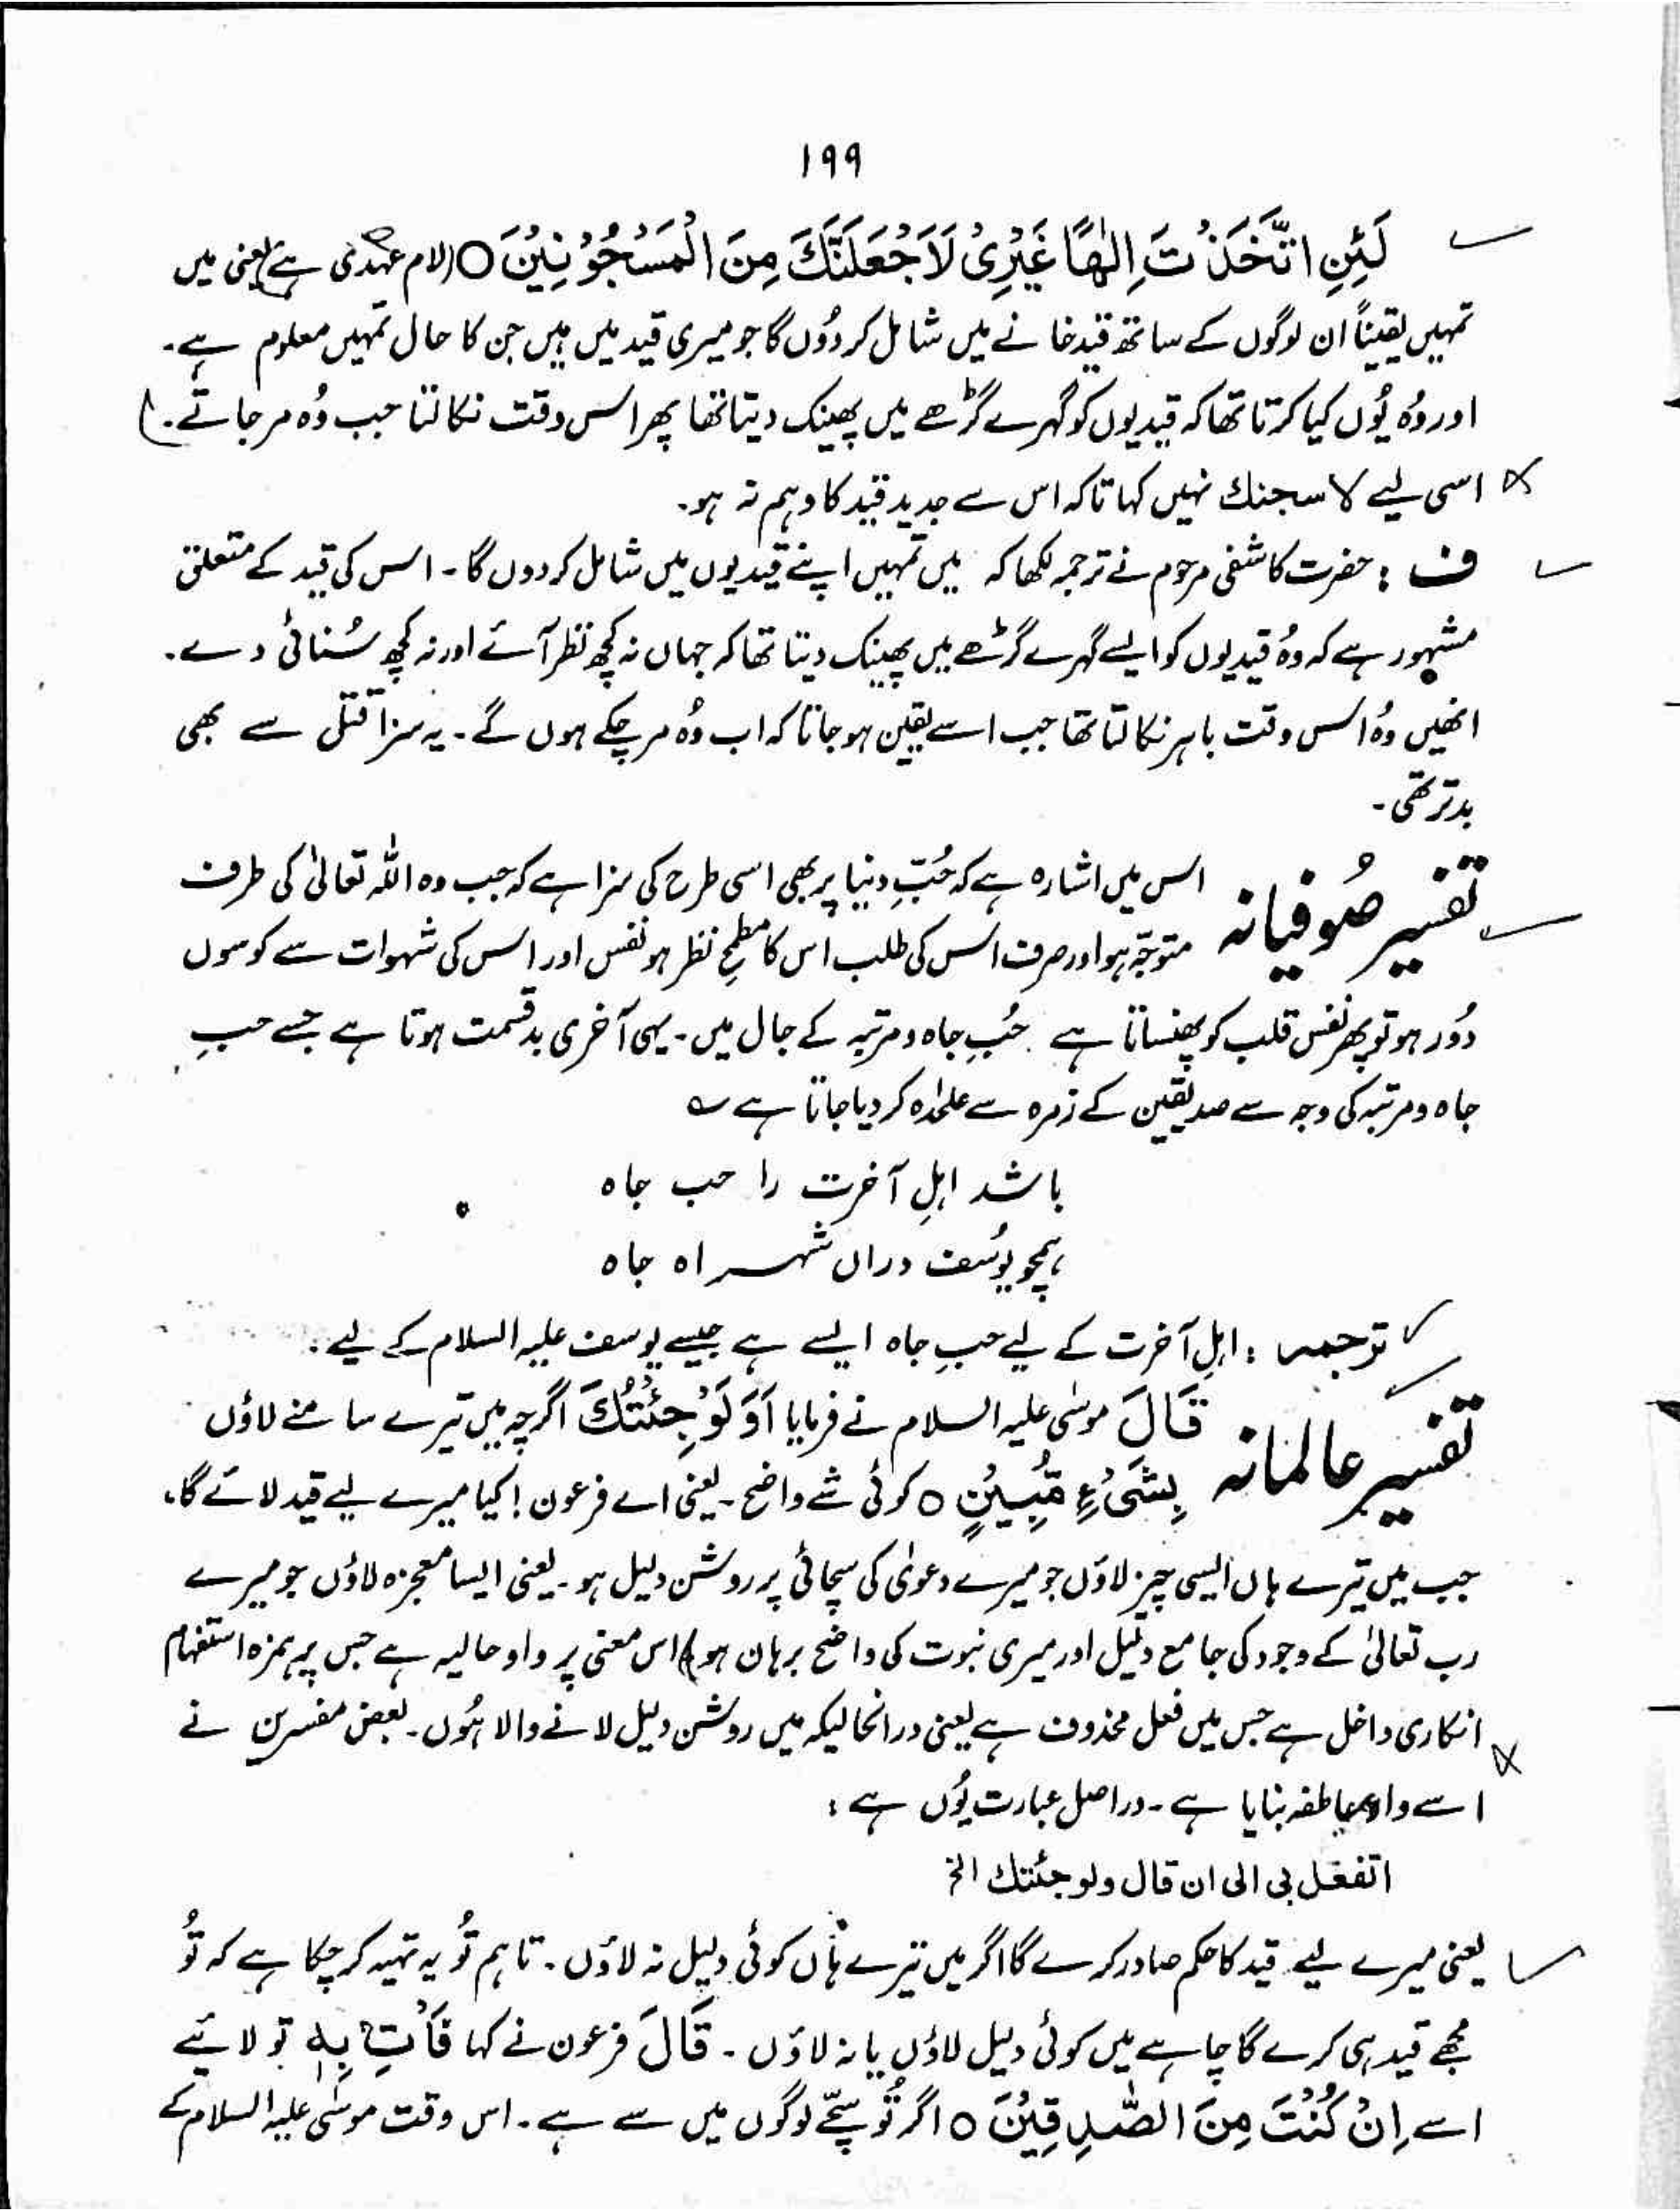 ۱۹۹
لَئِنِ اتَّخَذْتَ اِلٰهًا غَيْرِيْ لَاَجْعَلَنَّكَ مِنَ الْمَسْجُوْنِيْنَ ○ (لام عہدی ہے یعنی میں
تمہیں یقیناً ان لوگوں کے ساتھ قید خانے میں شامل کر دوُں گا جو میری قید میں ہیں جن کا حال تمہیں معلوم ہے۔
اور وُہ یُوں کیا کرتا تھا کہ قیدیوں کو گہرے گڑھے میں پھینک دیتا تھا پھر اس وقت نکالتا جب وُہ مر جاتے۔)
اسی لیے لاسجنك نہیں کہا تاکہ اس سے جدید قید کا وہم نہ ہو۔
ف : حضرت کاشفی مرحوم نے ترجمہ لکھا کہ میں تمہیں اپنے قیدیوں میں شامل کر دوں گا۔ اس کی قید کے متعلق
مشہور ہے کہ وُہ قیدیوں کو ایسے گہرے گڑھے میں پھینک دیتا تھا کہ جہاں نہ کچھ نظر آئے اور نہ کچھ سُنائی دے۔
انھیں وُہ اس وقت باہر نکالتا تھا جب اسے یقین ہو جاتا کہ اب وُہ مر چکے ہوں گے۔ یہ سزا قتل سے بھی
بدتر تھی۔
تفسیر صُوفیانہ اس میں اشارہ ہے کہ حُبِّ دنیا پر بھی اسی طرح کی سزا ہے کہ جب وہ اللہ تعالیٰ کی طرف
متوجّہ ہو اور صرف اس کی طلب اس کا مطمحِ نظر ہو نفس اور اس کی شہوات سے کوسوں
دُور ہو تو پھر نفس قلب کو پھنساتا ہے حُبِ جاہ و مرتبہ کے جال میں۔ یہی آخری بدقسمت ہوتا ہے جسے حبِ
جاہ و مرتبہ کی وجہ سے صدیقین کے زمرہ سے علٰحدہ کر دیا جاتا ہے ؎
باشد اہلِ آخرت را حب جاہ
ہمچو یوُسف دراں شہراہ جاہ
ترجمہ : اہلِ آخرت کے لیے حبِ جاہ ایسے ہے جیسے یوسف علیہ السلام کے لیے۔
تفسیر عالمانہ قَالَ موسٰی علیہ السلام نے فرمایا اَوَلَوْ جِئْتُكَ اگرچہ میں تیرے سامنے لاؤں
بِشَیْءٍ مُّبِيْنٍ ○ کوئی شے واضح۔ یعنی اے فرعون! کیا میرے لیے قید لائے گا،
جب میں تیرے ہاں ایسی چیز لاؤں جو میرے دعویٰ کی سچائی پر روشن دلیل ہو۔ یعنی ایسا معجزہ لاؤں جو میرے
رب تعالیٰ کے وجود کی جامع دلیل اور میری نبوت کی واضح برہان ہو) اس معنی پر واو حالیہ ہے جس پر ہمزہ استفہام
انکاری داخل ہے جس میں فعل محذوف ہے یعنی درانحالیکہ میں روشن دلیل لانے والا ہُوں۔ بعض مفسرین نے
اسے واو عاطفہ بنایا ہے۔ دراصل عبارت یُوں ہے :
اتفعل بی الی ان قال ولو جئتك الخ
یعنی میرے لیے قید کا حکم صادر کرے گا اگر میں تیرے ہاں کوئی دلیل نہ لاؤں۔ تاہم تُو یہ تہیہ کر چکا ہے کہ تُو
مجھے قید ہی کرے گا چاہے میں کوئی دلیل لاؤں یا نہ لاؤں۔ قَالَ فرعون نے کہا فَاْتِ بِهٖ تو لائیے
اسے اِنْ كُنْتَ مِنَ الصّٰدِقِيْنَ ○ اگر تُو سچّے لوگوں میں سے ہے۔ اس وقت موسٰی علیہ السلام کے